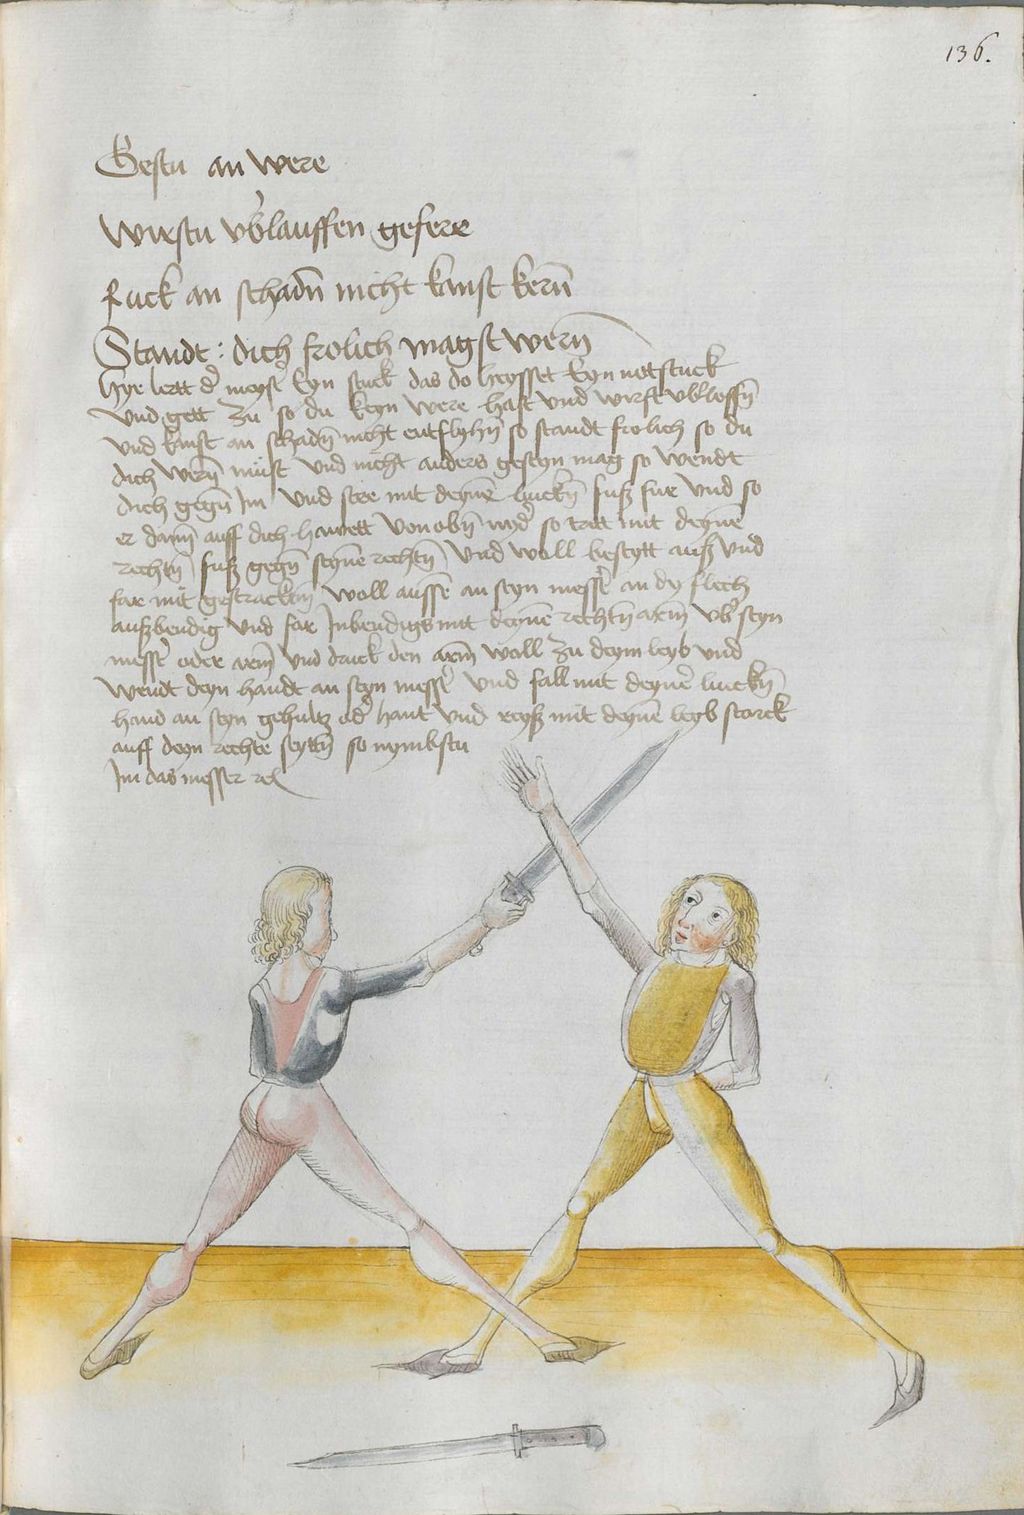 136.
Gestu an were
wirstu vb̾lauffen gefere
fuck an schadn̄ nicht kanst kern̄
Standt: dich frolich magst wern̄
Hye lertt d̾ meyst̾ Eyn stuck das do heysset Eyn notstuck
vnd gett zu so du keyn were hast vnd wirst vb̾loffn̄
vnd kanst an schadn̄ nicht entflyhn̄ so standt frolich so du
dich wern̄ must vnd nicht anders geseyn mag so wendt
dich gegn̄ Im vnd stee mit deynē linckn̄ fuß fur vnd so
er dann auff dich hawett von obn̄ nyd̾ so tritt mit deynē
rechtn̄ fuß gegn̄ seynē rechtn̄ vnd woll beseytt auß vnd
far mit gestracktm̄ woll aussē an seyn mess̾ an dy flech
außbendig vnd far Inbendigs mit deynē rechtn̄ arm̄ vb̾ seyn
mess̾ oder arm̄ vnd druck den arm̄ woll zu deym leyb vnd
wendt deyn handt an seyn mess̾ vnd fall mit deyn̾ linckn̄
hand an seyn gehultz od̾ hant vnd reyß mit deynē leyb starck
auff deyn rechte seyttn̄ so nymbstu
Im das messer